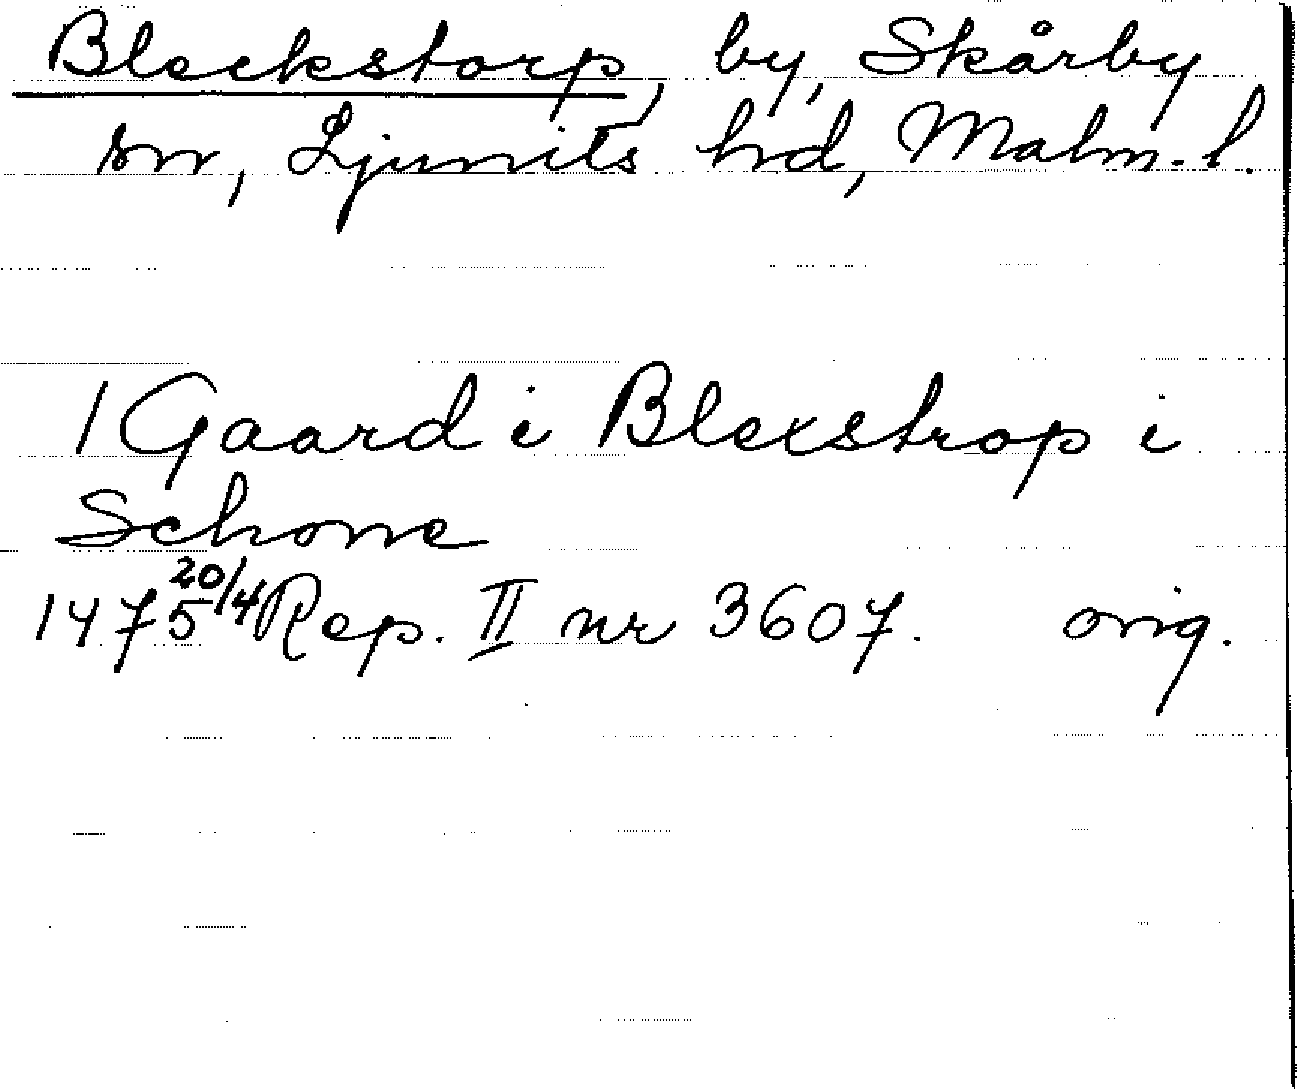 Bleckstorp, by, Skårby
sn, Ljunits hd, Malm. l.
1 Gaard i Blexstrop i
Schone
1475 20/4 Rep. II nr 3607. orig.